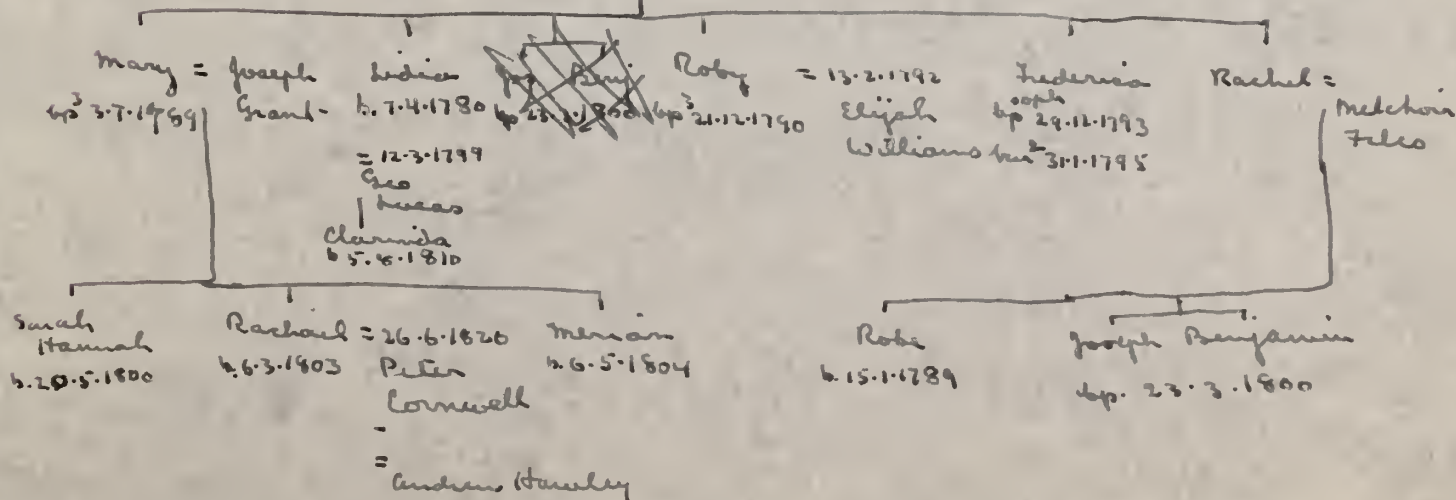 Mary = Joseph
Grant -
Lidia
b. 7.4.1780
= 12.3.1799
Geo
Lucas
Clarinda
b 5.8.1810
Jos Benj
Roby
bp³ 21.12.1790
= 13.2.1792
Elijah
Williams
Frederica
bp 29.12.1793
bur² 31.1.1795
Rachel =
Melchoir
Files
Sarah
Hannah
b. 20.5.1800
Rachael
b. 6.3.1803
= 26.6.1820
Peter
Cornwell
-
=
Andrew Hawley
Meriam
b. 6.5.1804
Robe
b. 15.1.1789
Joseph Benjamin
bp. 23.3.1800